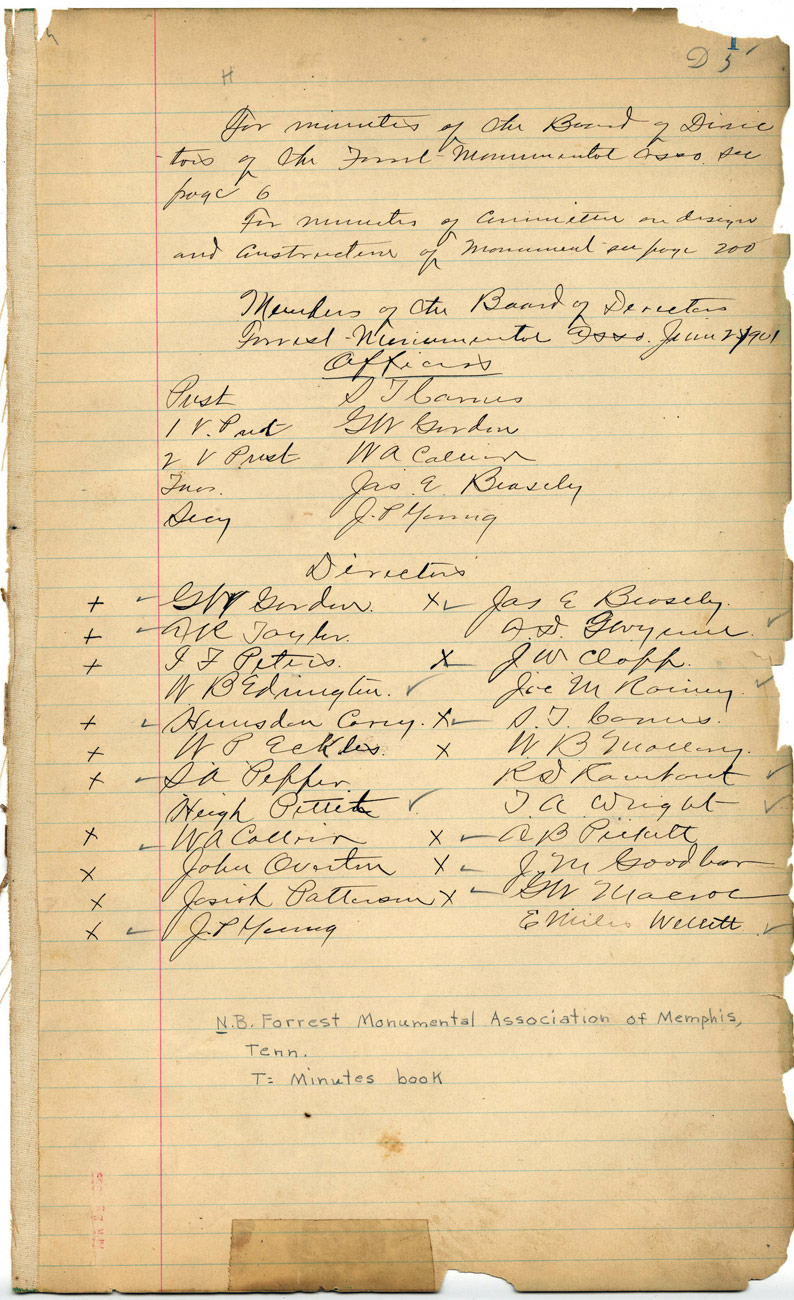 D 5
H
For minutes of the Board of Direc
tors of the Forrest Monumental Asso. see
page 6
For minutes of Committee on design
and Construction of Monument see page 200
Members of the Board of Directors
Forrest Monumental Asso. June 1901
Officers
Prest S T Carnes
1 V. Prest GW Gordon
2 V Prest W A Collier
Treas. Jas. E. Beasely
Secy J. P Young
Directors
+ ✓ GW Gordon. X ✓ Jas E Beasely.
+ ✓ A R Taylor. A. D. Gwynne. ✓
+ I F Peters. X J W Clapp.
W B Edrington. ✓ Joe M Rainey. ✓
+ ✓ Hunsdon Cary. X ✓ S. T. Carnes.
X W P Eckles. X W B Mallory.
X ✓ S A Pepper. R D Rambaut ✓
Heigh Pettit ✓ T A Wright ✓
X ✓ W A Collier X ✓ A B Pickett
X John Overton X ✓ J M Goodbar
X Josiah Patterson X ✓ GW Macrae
X ✓ J. P Young E Miles Willett ✓
N.B. Forrest Monumental Association of Memphis,
Tenn.
T= Minutes book